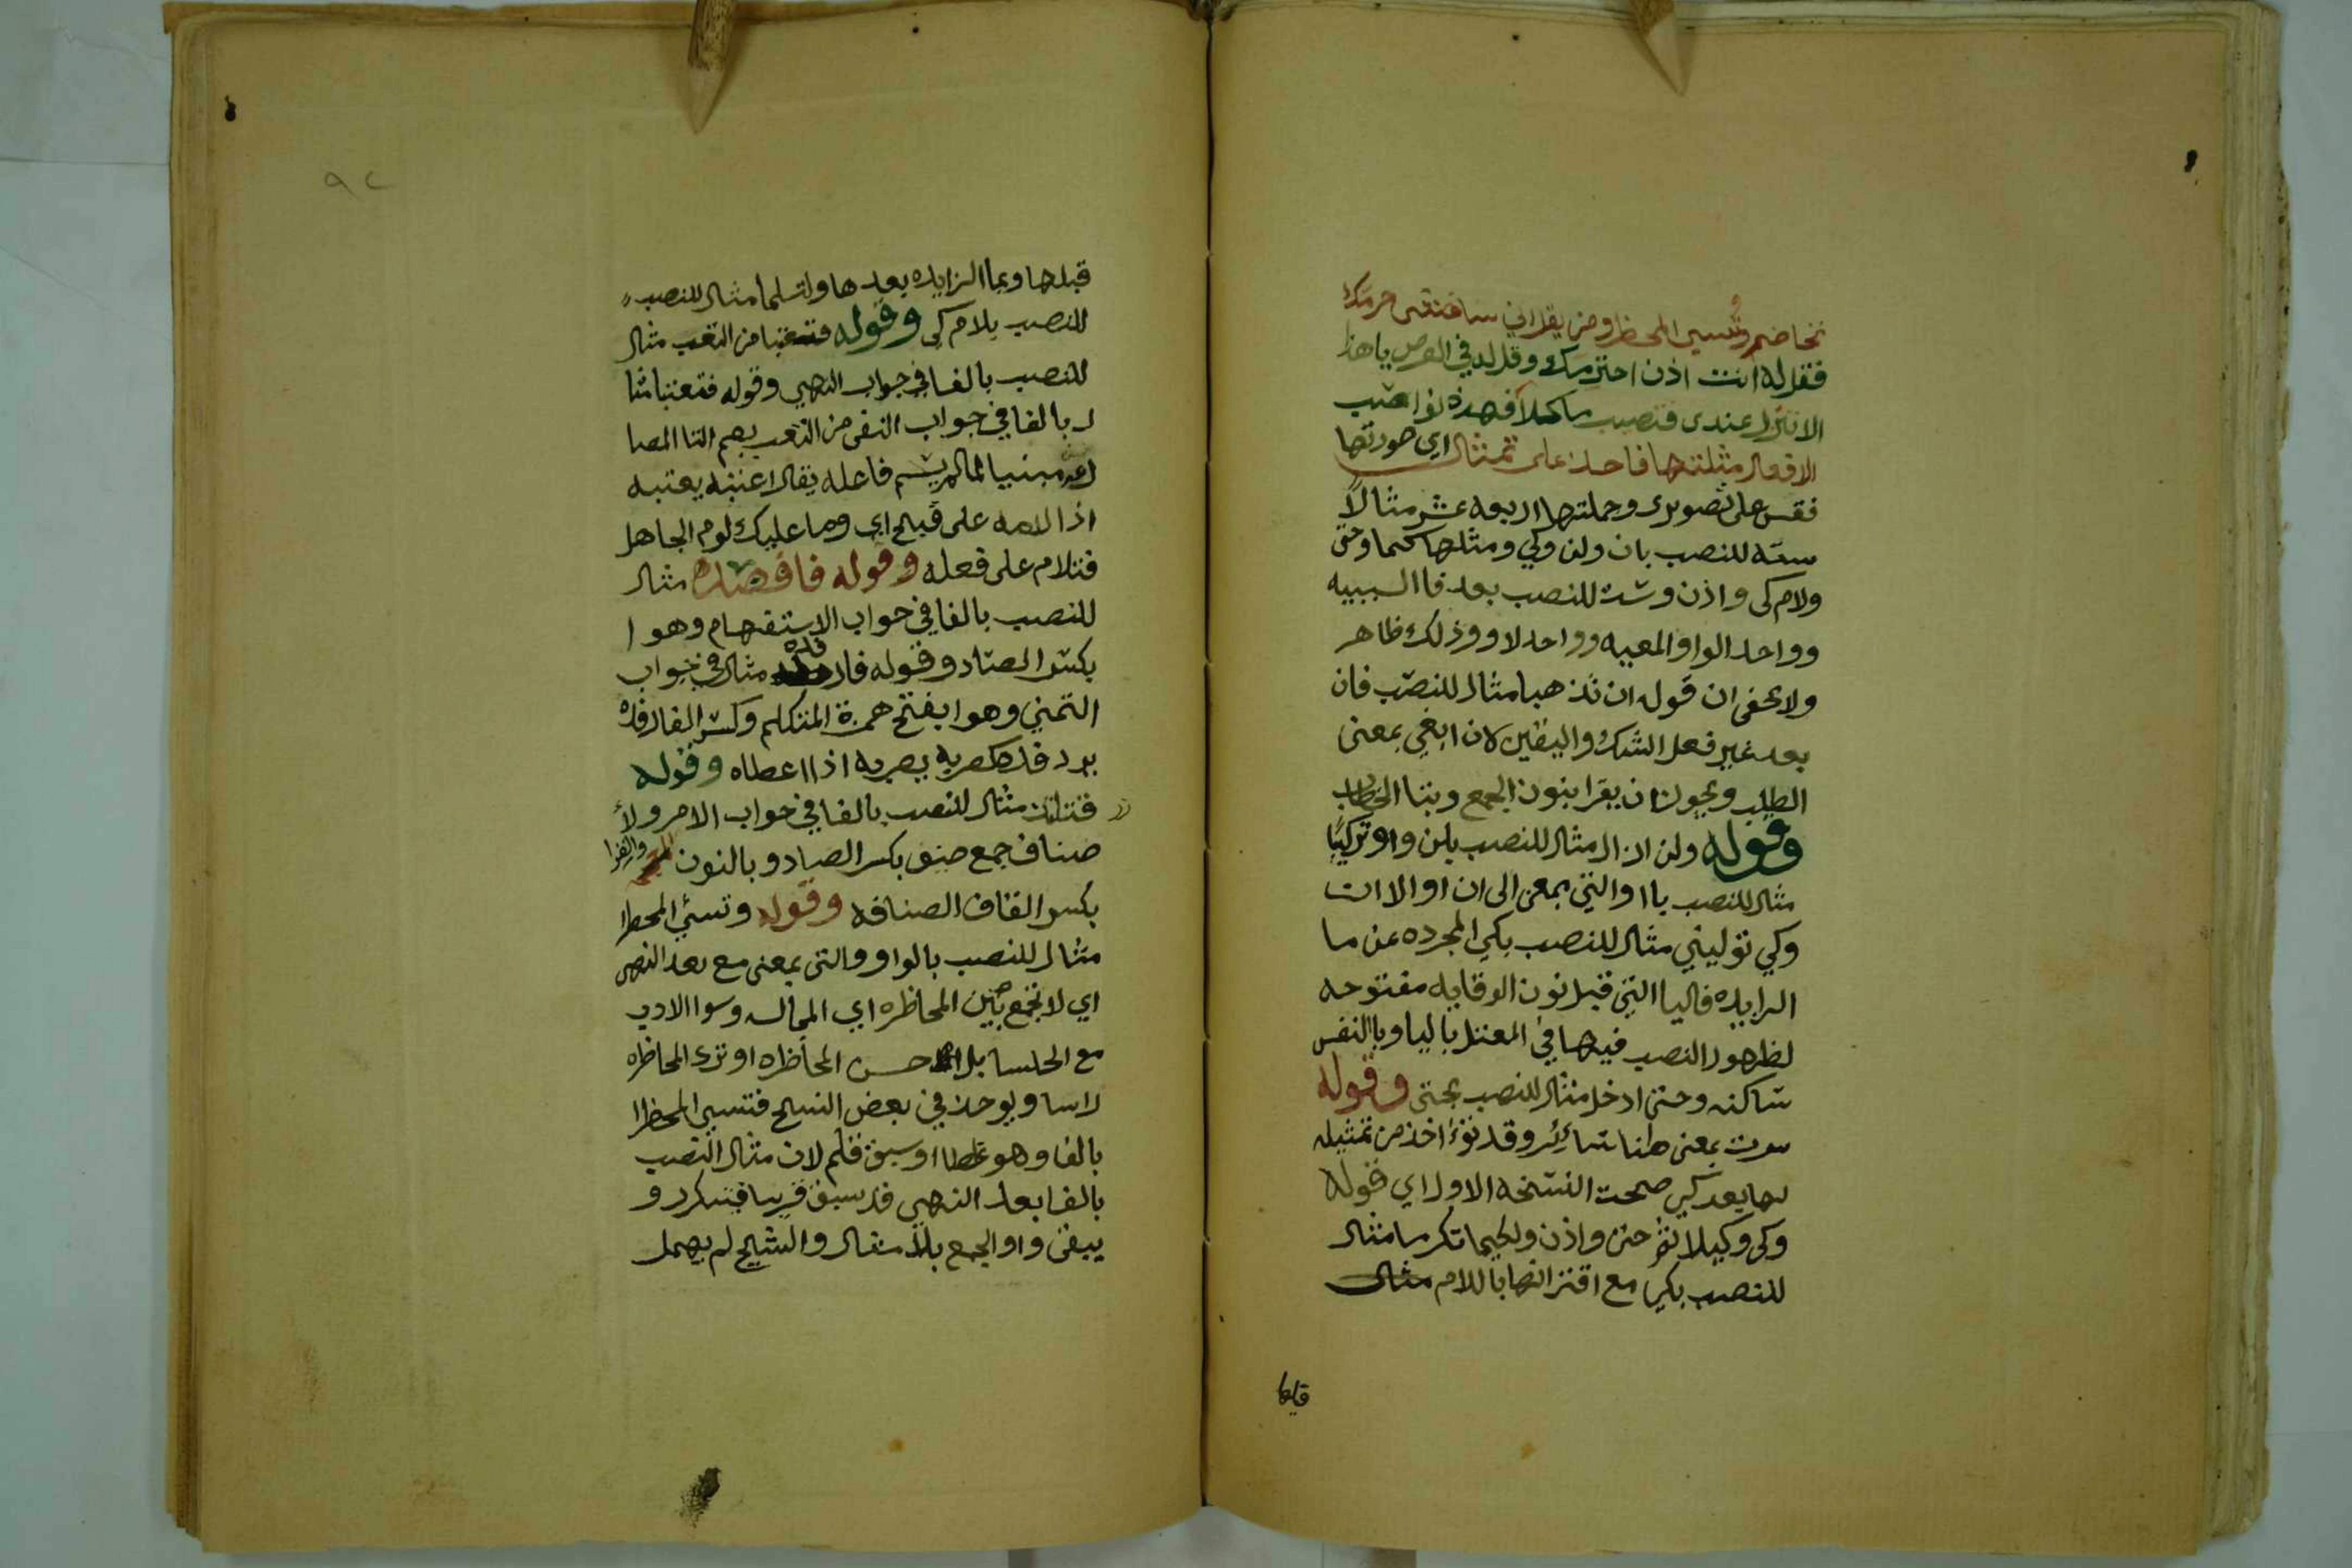 تخاضم وتسي المحظر ومن يقل اني ساغتنى حرمك
فقل له انت اذن احترمك وقل له في العرض ياهذا
الا تنزل عندى فتصيب ماكلا فهذه نواصب
الافعال مثلتها فاحذ على تمثال اي صورتها
فقس على تصويرى وجملتها اربعه عشر مثالا
سته للنصب بان ولن وكي ومثلها كيما وحتى
ولام كى واذن وست للنصب بعد فا السببيه
وواحد الواو المعيه وواحد لاو وذلك ظاهر
ولا يخفى ان قوله ان تذهبا مثال للنصب فان
بعد غير فعل الشك واليقين لان ابغي بمعنى
الطلب ويجوز ان يقرا بنون الجمع وبتا الخطاب
وقوله ولن ازال مثال للنصب بلن واو تركبا
مثال للنصب باا والتي بمعنى الى ان او الا ان
وكي توليني مثال للنصب بكي المجرده عن ما
الزايده فاليا التي قبل نون الوقايه مفتوحه
لظهور النصب فيها في المعتل باليا وبالنفس
ساكنه وحتى ادخل مثال للنصب بحتى وقوله
سرت بمعنى هنا سائر وقد نوء اخذ من تمثيله
لها بعد كي صحت النسخه الاولا اي قوله
وكى وكيلا ثم حتى واذن ولكيما تكرما مثال
للنصب بكي مع اقترانها باللام مثال
قبلها
٩٢
قبلها وبما الزايده بعدها ولتسلما مثال للنصب
للنصب بلام كي وقوله فتعتبا من التعب مثال
للنصب بالفا في جواب النهي وقوله فتعتبا مثا
ل بالفا في جواب النفى من التعب بضم التا المضا
رعه مبنيا لما لم يسم فاعله يقال اعتبه يعتبه
اذا لامه على قبيح اي وما عليك لوم الجاهل
فتلام على فعله وقوله فاقصده مثال
للنصب بالفا في جواب الاستفهام وهو ا
بكسر الصاد وقوله فارفده مثال في جواب
التمني وهو ا بفتح همزة المتكلم وكسر الفا رفده
يرفده كضربه يضربه اذا اعطاه وقوله
فتلتذ مثال للنصب بالفا في جواب الامر ولا
صناف جمع صنف بكسر الصاد وبالنون والقرا
بكسر القاف الضيافه وقوله وتسئ المحضرا
مثال للنصب بالواو والتى بمعنى مع بعد النهى
اي لا تجمع بين المحاظره اي المجالسه وسوا الادب
مع الجلسا بل اما حسن المحاظره او ترك المحاظره
راسا ويوجد في بعض النسخ فتسي المحظرا
بالفا وهو غطا او سبق قلم لان مثال النصب
بالفا بعد النهي قد سبق قريبا فيتكرر و
يبقى واو الجمع بلا مثال والشيخ لم يهمل